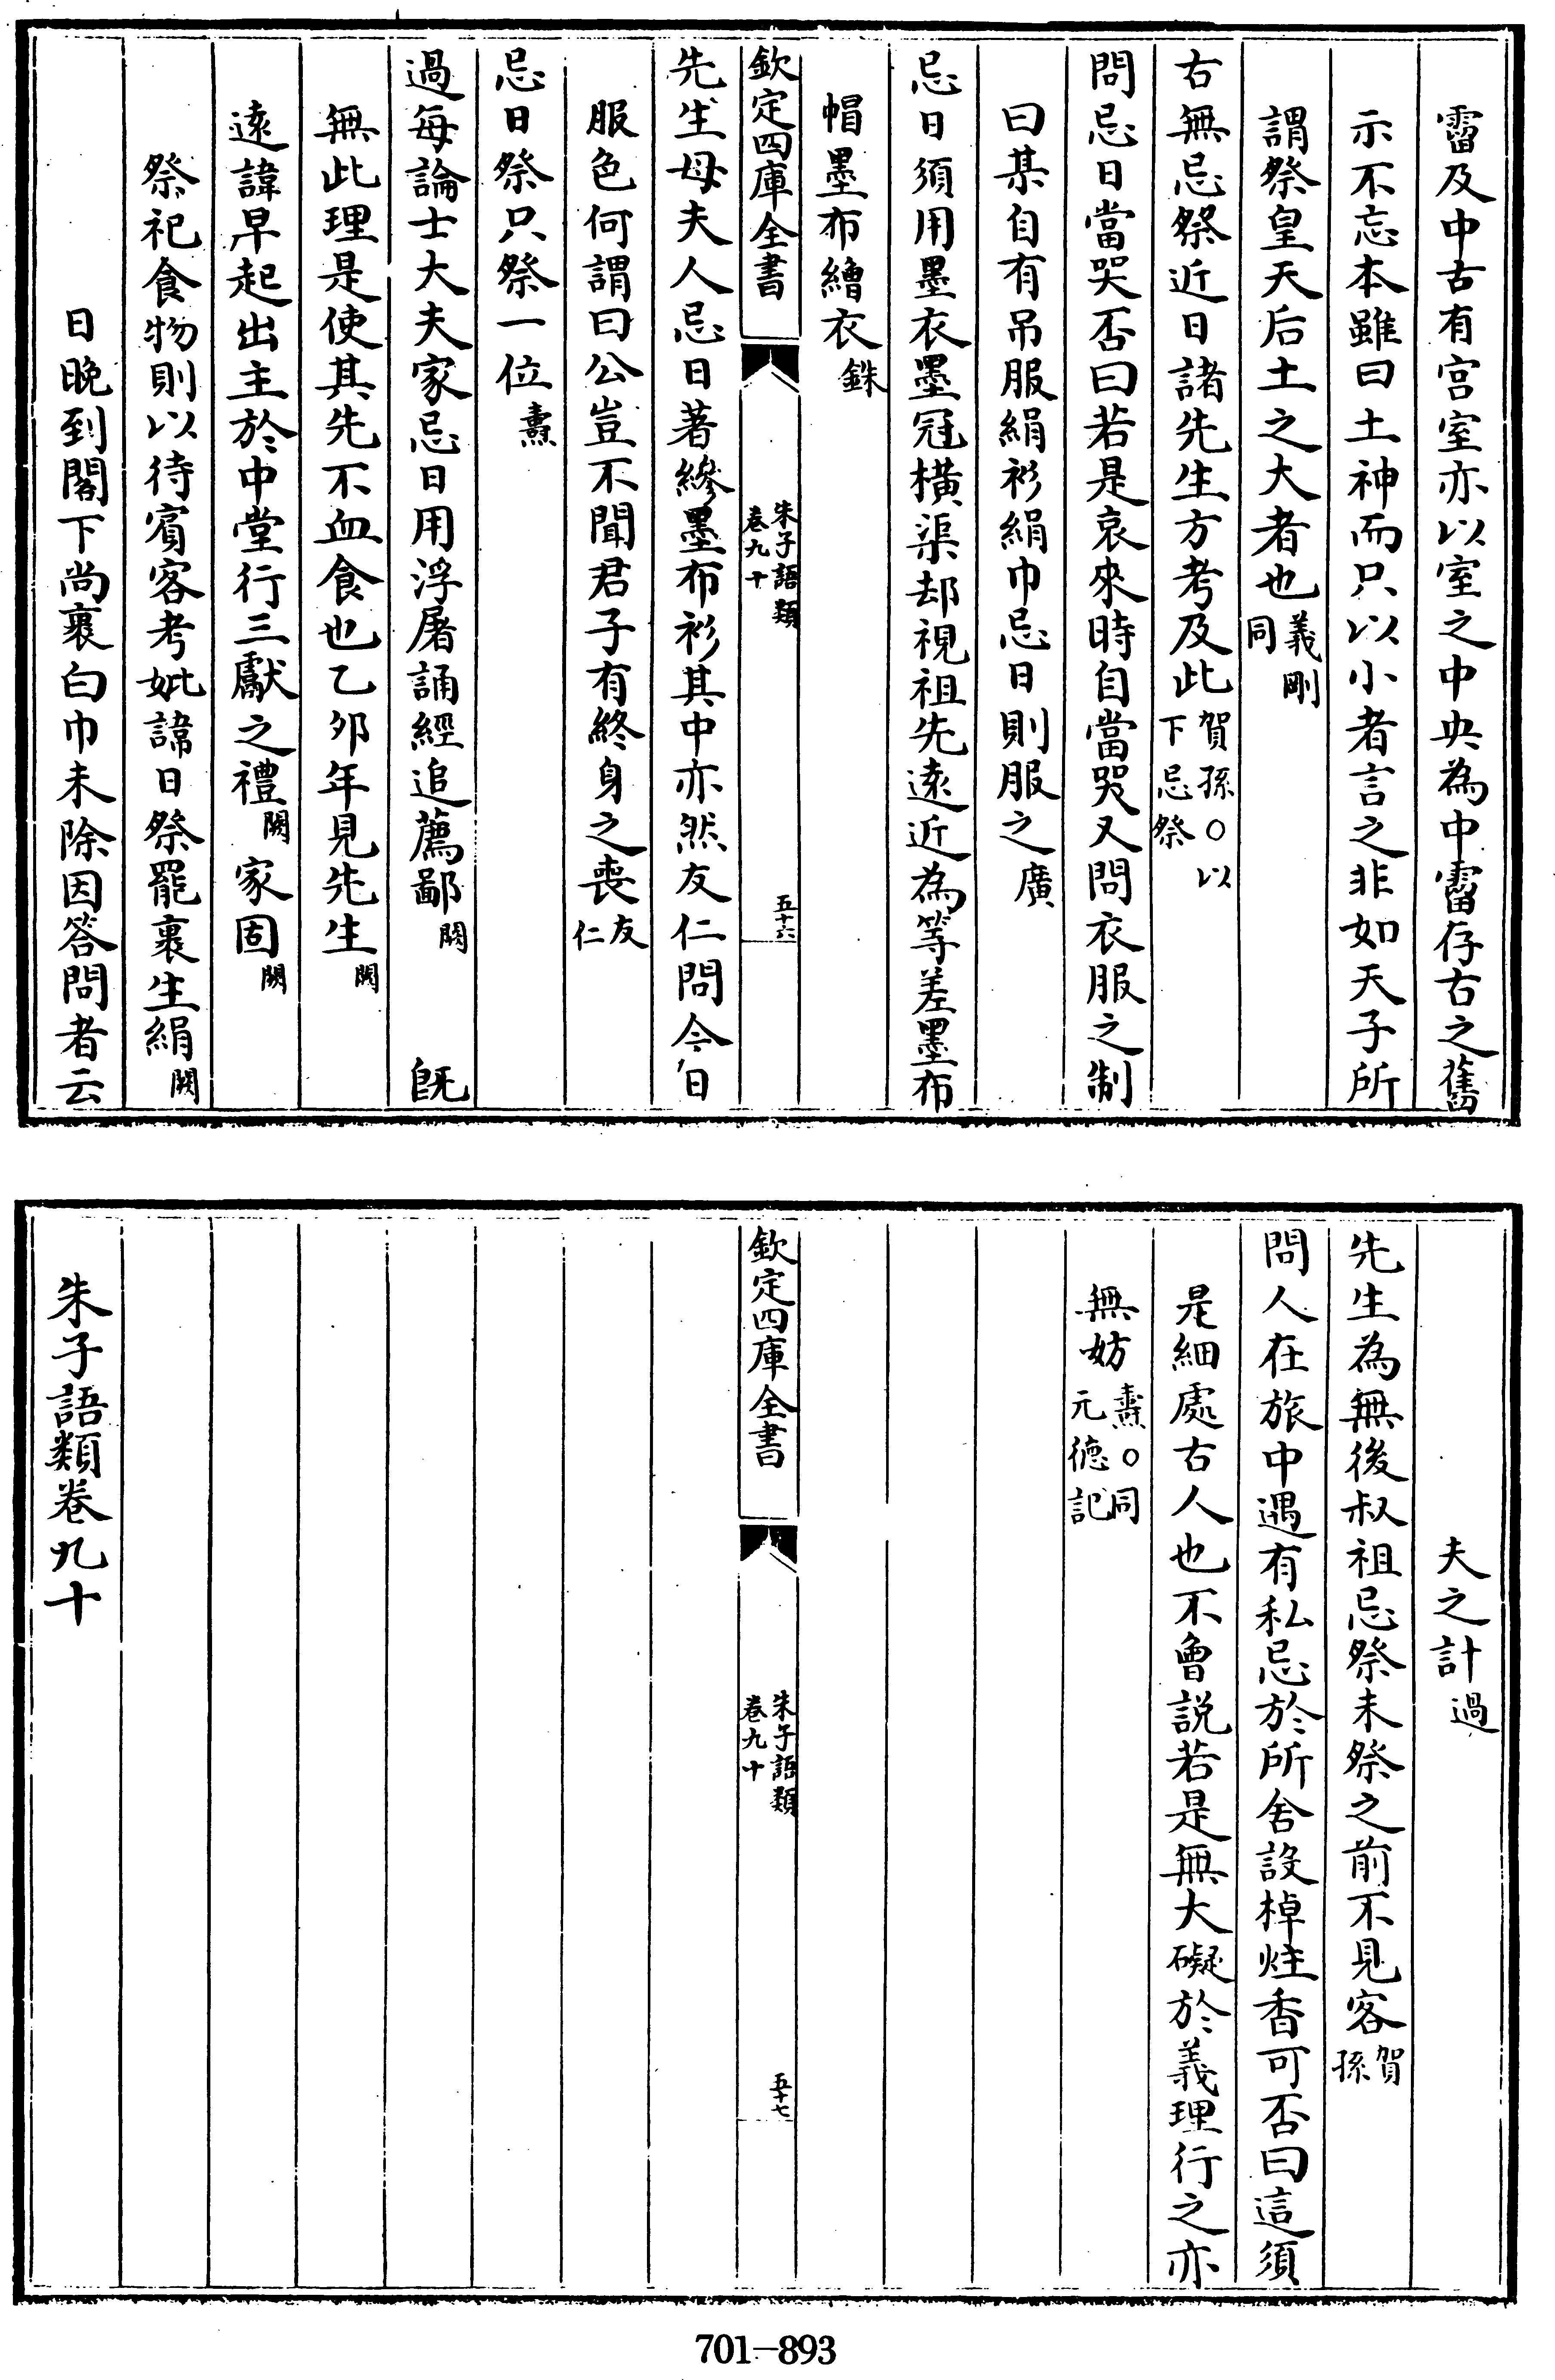 霤及中古有宫室亦以室之中央為中霤存古之舊
示不忘本雖曰土神而只以小者言之非如天子所
謂祭皇天后土之大者也義剛同
古無忌祭近日諸先生方考及此賀孫○以下忌祭
問忌日當哭否曰若是哀來時自當哭又問衣服之制
曰某自有吊服絹衫絹巾忌日則服之廣
忌日須用墨衣墨冠橫渠却視祖先逺近為等差墨布
帽墨布繒衣銖
欽定四庫全書
朱子語類
卷九十
五十六
先生母夫人忌日著縿墨布衫其中亦然友仁問今日
服色何謂曰公豈不聞君子有終身之喪友仁
忌日祭只祭一位燾
過每論士大夫家忌日用浮屠誦經追薦鄙闕 旣
無此理是使其先不血食也乙夘年見先生闕
逺諱早起出主於中堂行三獻之禮闕家固闕
祭祀食物則以待賔客考妣諱日祭罷裹生絹闕
日晚到閣下尚裹白巾未除因答問者云
夫之計過
先生為無後叔祖忌祭未祭之前不見客賀孫
問人在旅中遇有私忌於所舍設棹炷香可否曰這須
是細處古人也不曾説若是無大礙於義理行之亦
無妨燾○同元德記
欽定四庫全書
朱子語類
卷九十
五十七
朱子語類卷九十
701-893